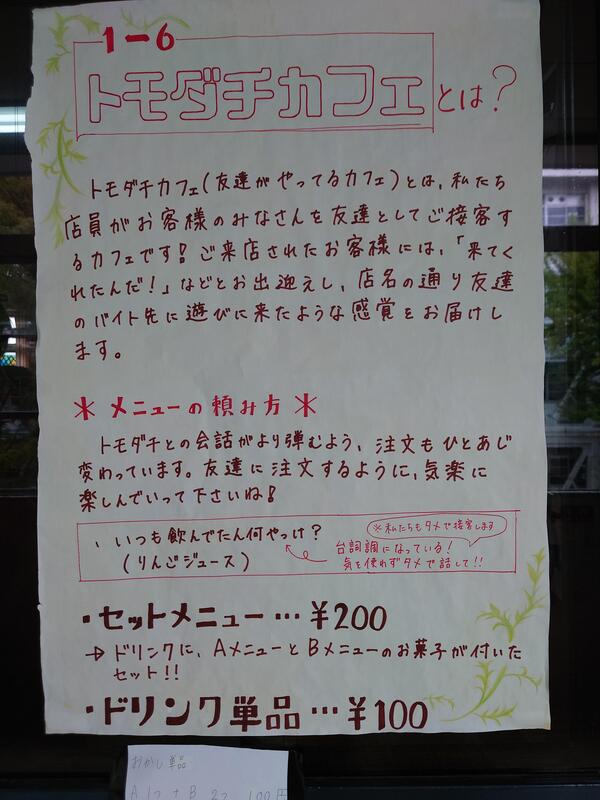 1-6
トモダチカフェとは?
トモダチカフェ(友達がやってるカフェ)とは、私たち
店員がお客様のみなさんを友達としてご接客す
るカフェです!ご来店されたお客様には、「来てく
れたんだ!」などとお出迎えし、店名の通り友達
のバイト先に遊びに来たような感覚をお届けし
ます。
* メニューの頼み方 *
トモダチとの会話がより弾むよう、注文もひとあじ
変わっています。友達に注文するように、気楽に
楽しんでいって下さいね!
・いつも飲んでたん何やっけ?
(りんごジュース)
※私たちもタメで接客します
台詞調になっている!
気を使わずタメで話して!!
・セットメニュー…¥200
→ドリンクに、AメニューとBメニューのお菓子が付いた
セット!!
・ドリンク単品…¥100
おかし単品